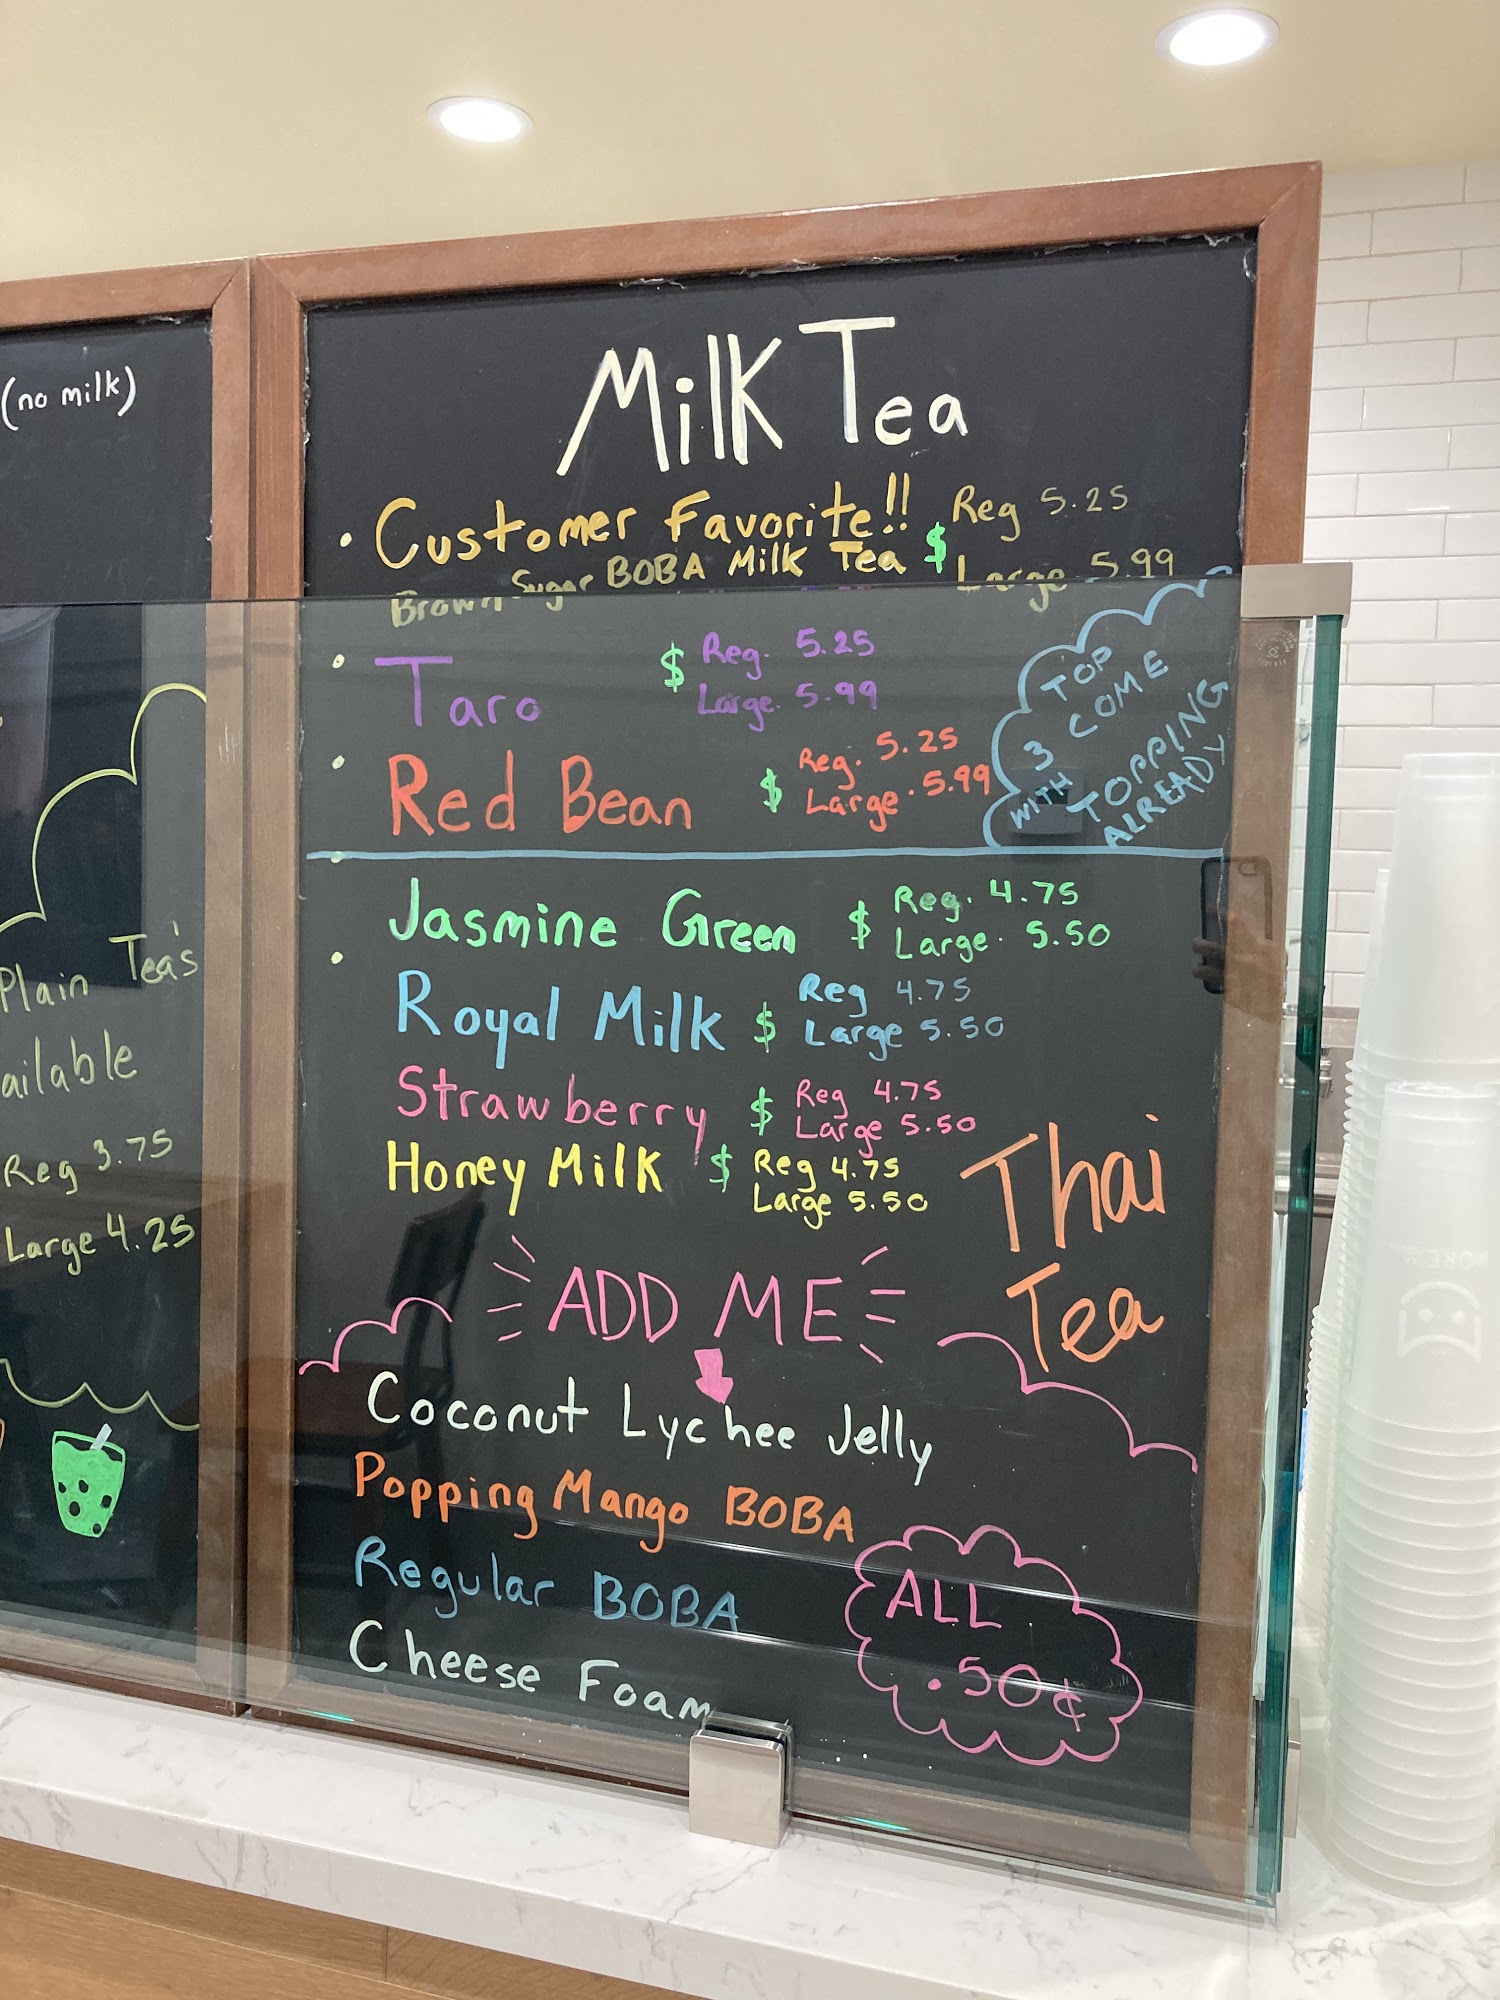 (no milk)
Plain Tea's
ailable
Reg 3.75
Large 4.25
Milk Tea
• Customer Favorite!!
Brown Sugar BOBA Milk Tea $ Reg 5.25
Large 5.99
• Taro $ Reg. 5.25
Large. 5.99
• Red Bean $ Reg. 5.25
Large. 5.99
TOP
3 COME
WITH TOPPING
ALREADY
Jasmine Green $ Reg. 4.75
Large. 5.50
Royal Milk $ Reg 4.75
Large 5.50
Strawberry $ Reg 4.75
Large 5.50
Honey Milk $ Reg 4.75
Large 5.50
Thai
Tea
ADD ME
Coconut Lychee Jelly
Popping Mango BOBA
Regular BOBA
Cheese Foam
ALL
.50¢